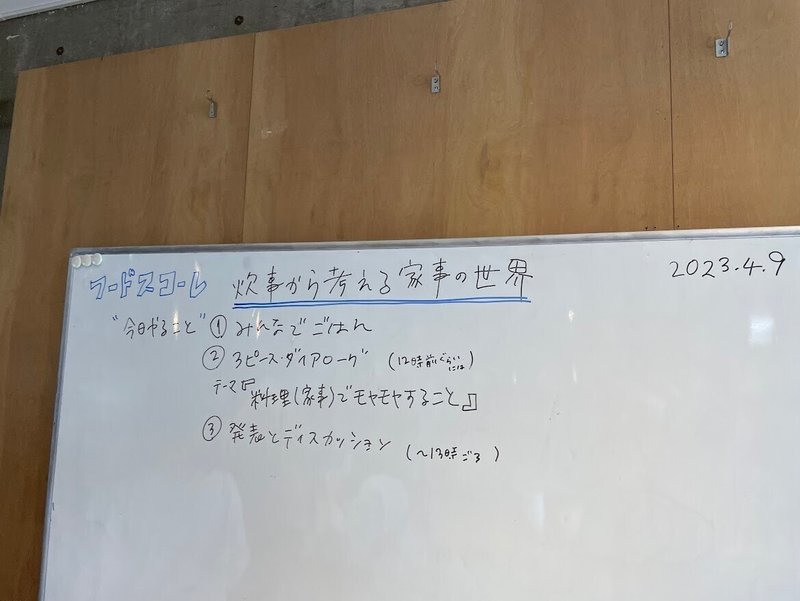 フードスコーレ 炊事から考える家事の世界 2023.4.9
"今日やること" ① みんなでごはん
② 3ピース・ダイアローグ (12時前ぐらいには)
テーマ『料理(家事)でモヤモヤすること』
③ 発表とディスカッション (〜13時ごろ)